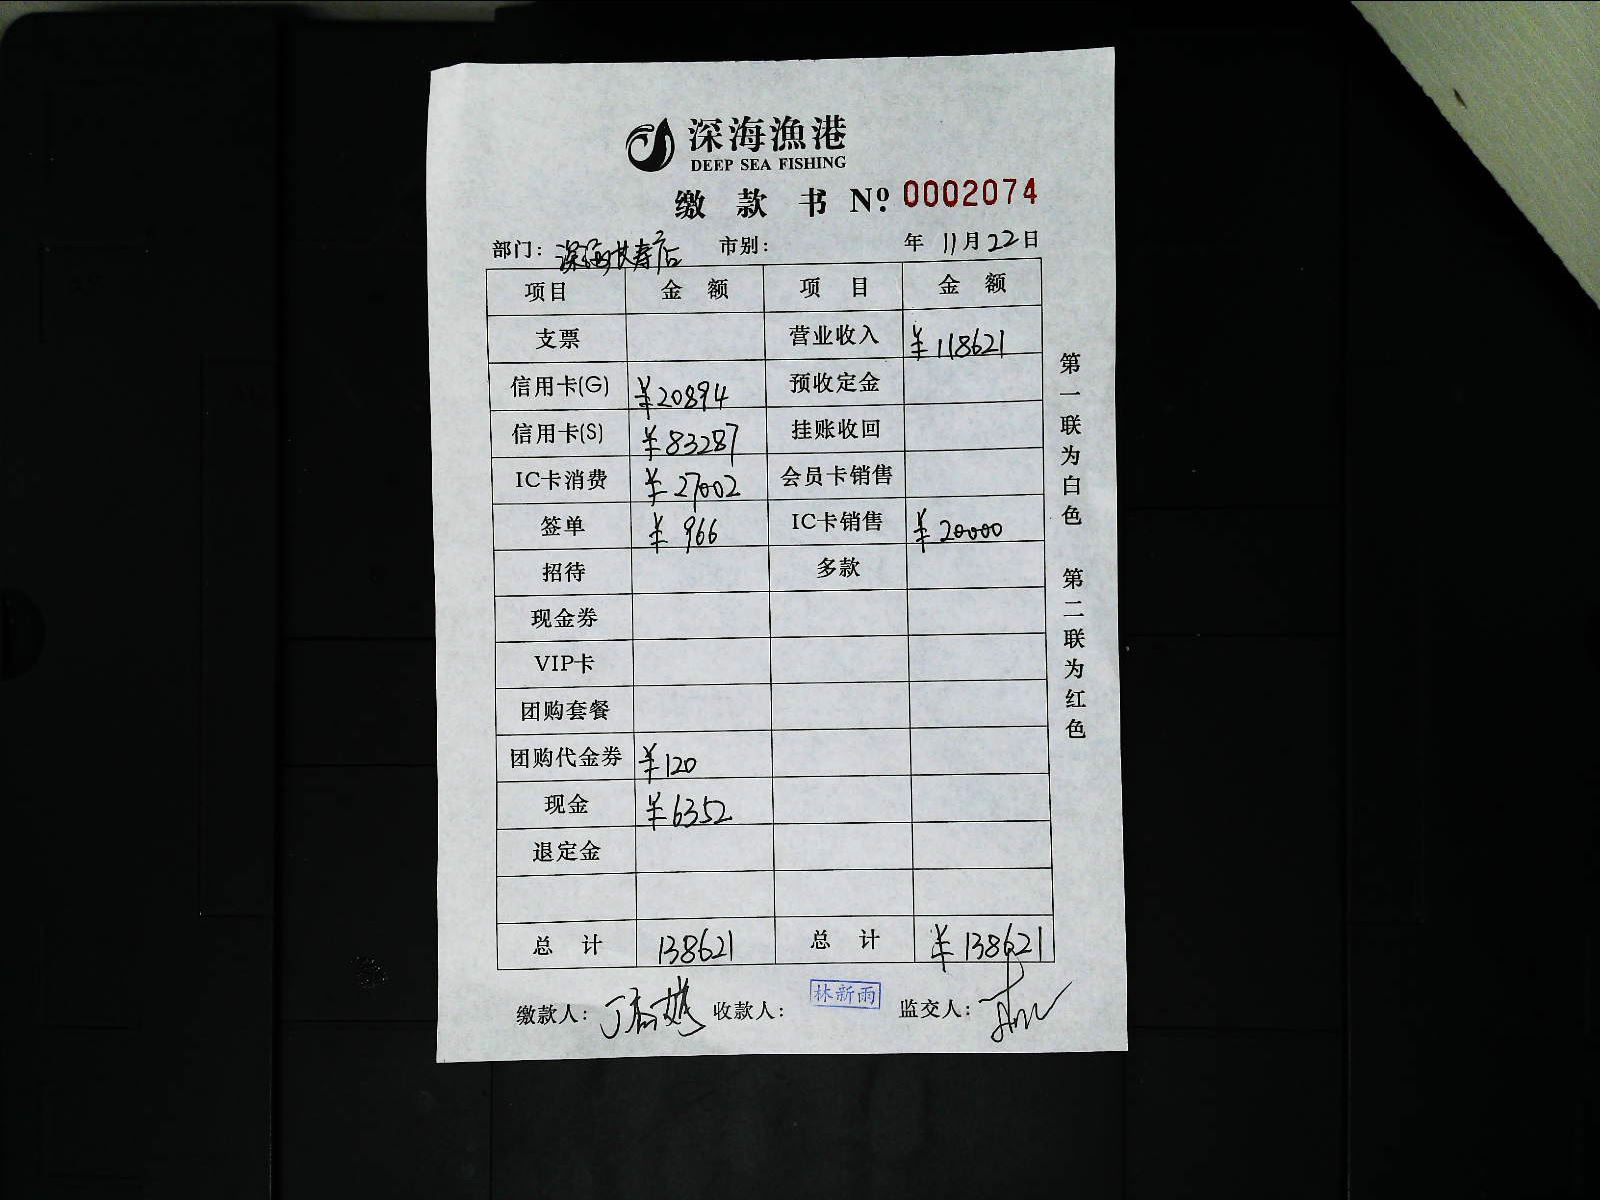 深海漁港
DEEP SEA FISHING
缴 款 书 Nº: 0002074
部门: 深海长寿店 市别: 年 11月22日
项目 金 额 项 目 金 额
支票 营业收入 ¥118621
信用卡(G) ¥20894 预收定金
信用卡(S) ¥83287 挂账收回
IC卡消费 ¥27002 会员卡销售
签单 ¥966 IC卡销售 ¥20000
招待 多款
现金券
VIP卡
团购套餐
团购代金券 ¥120
现金 ¥6352
退定金
总 计 138621 总 计 ¥138621
缴款人: 收款人: 林新雨 监交人:
第一联为白色 第二联为红色